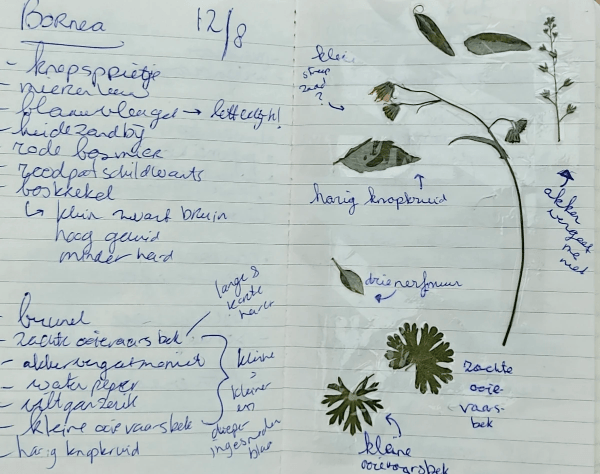 Bornea 12/8
- knopsprietje
- mierenleeuw
- blauwvleugel → letterlijk!
- heidezandbij
rode bosmier
- roodpootschildwants
- boskrekel
↳ klein zwart bruin
hoog geluid
minder hard
- brunel
- zachte ooievaarsbek
- akkervergeetmeniet
- waterpeper
- viltganzerik
- kleine ooievaarsbek
- harig knopkruid
lange &
korte
haren
kleine
=
kleiner
en
dieper
ingesneden
blad
klein
streep
zaad
?
harig knopkruid
akker
vergeet
me
niet
drienerfmuur
zachte
ooie-
vaars-
bek
kleine
ooievaarsbek